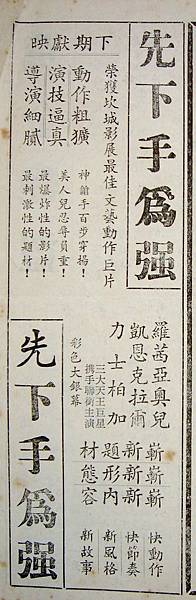 下期獻映
先下手為强
榮獲坎城影展最佳文藝動作巨片
動作粗獷
演技逼真
導演細膩
神鎗手百步穿楊!
美人兒忍辱負重!
最爆炸性的影片!
最刺激性的題材!
羅茜亞奧兒
凱恩克拉爾
力士柏加
三大天王巨星
携手聯銜主演
彩色大銀幕
嶄新內容
嶄新形態
嶄新題材
快動作
快節奏
新風格
新故事
先下手為强